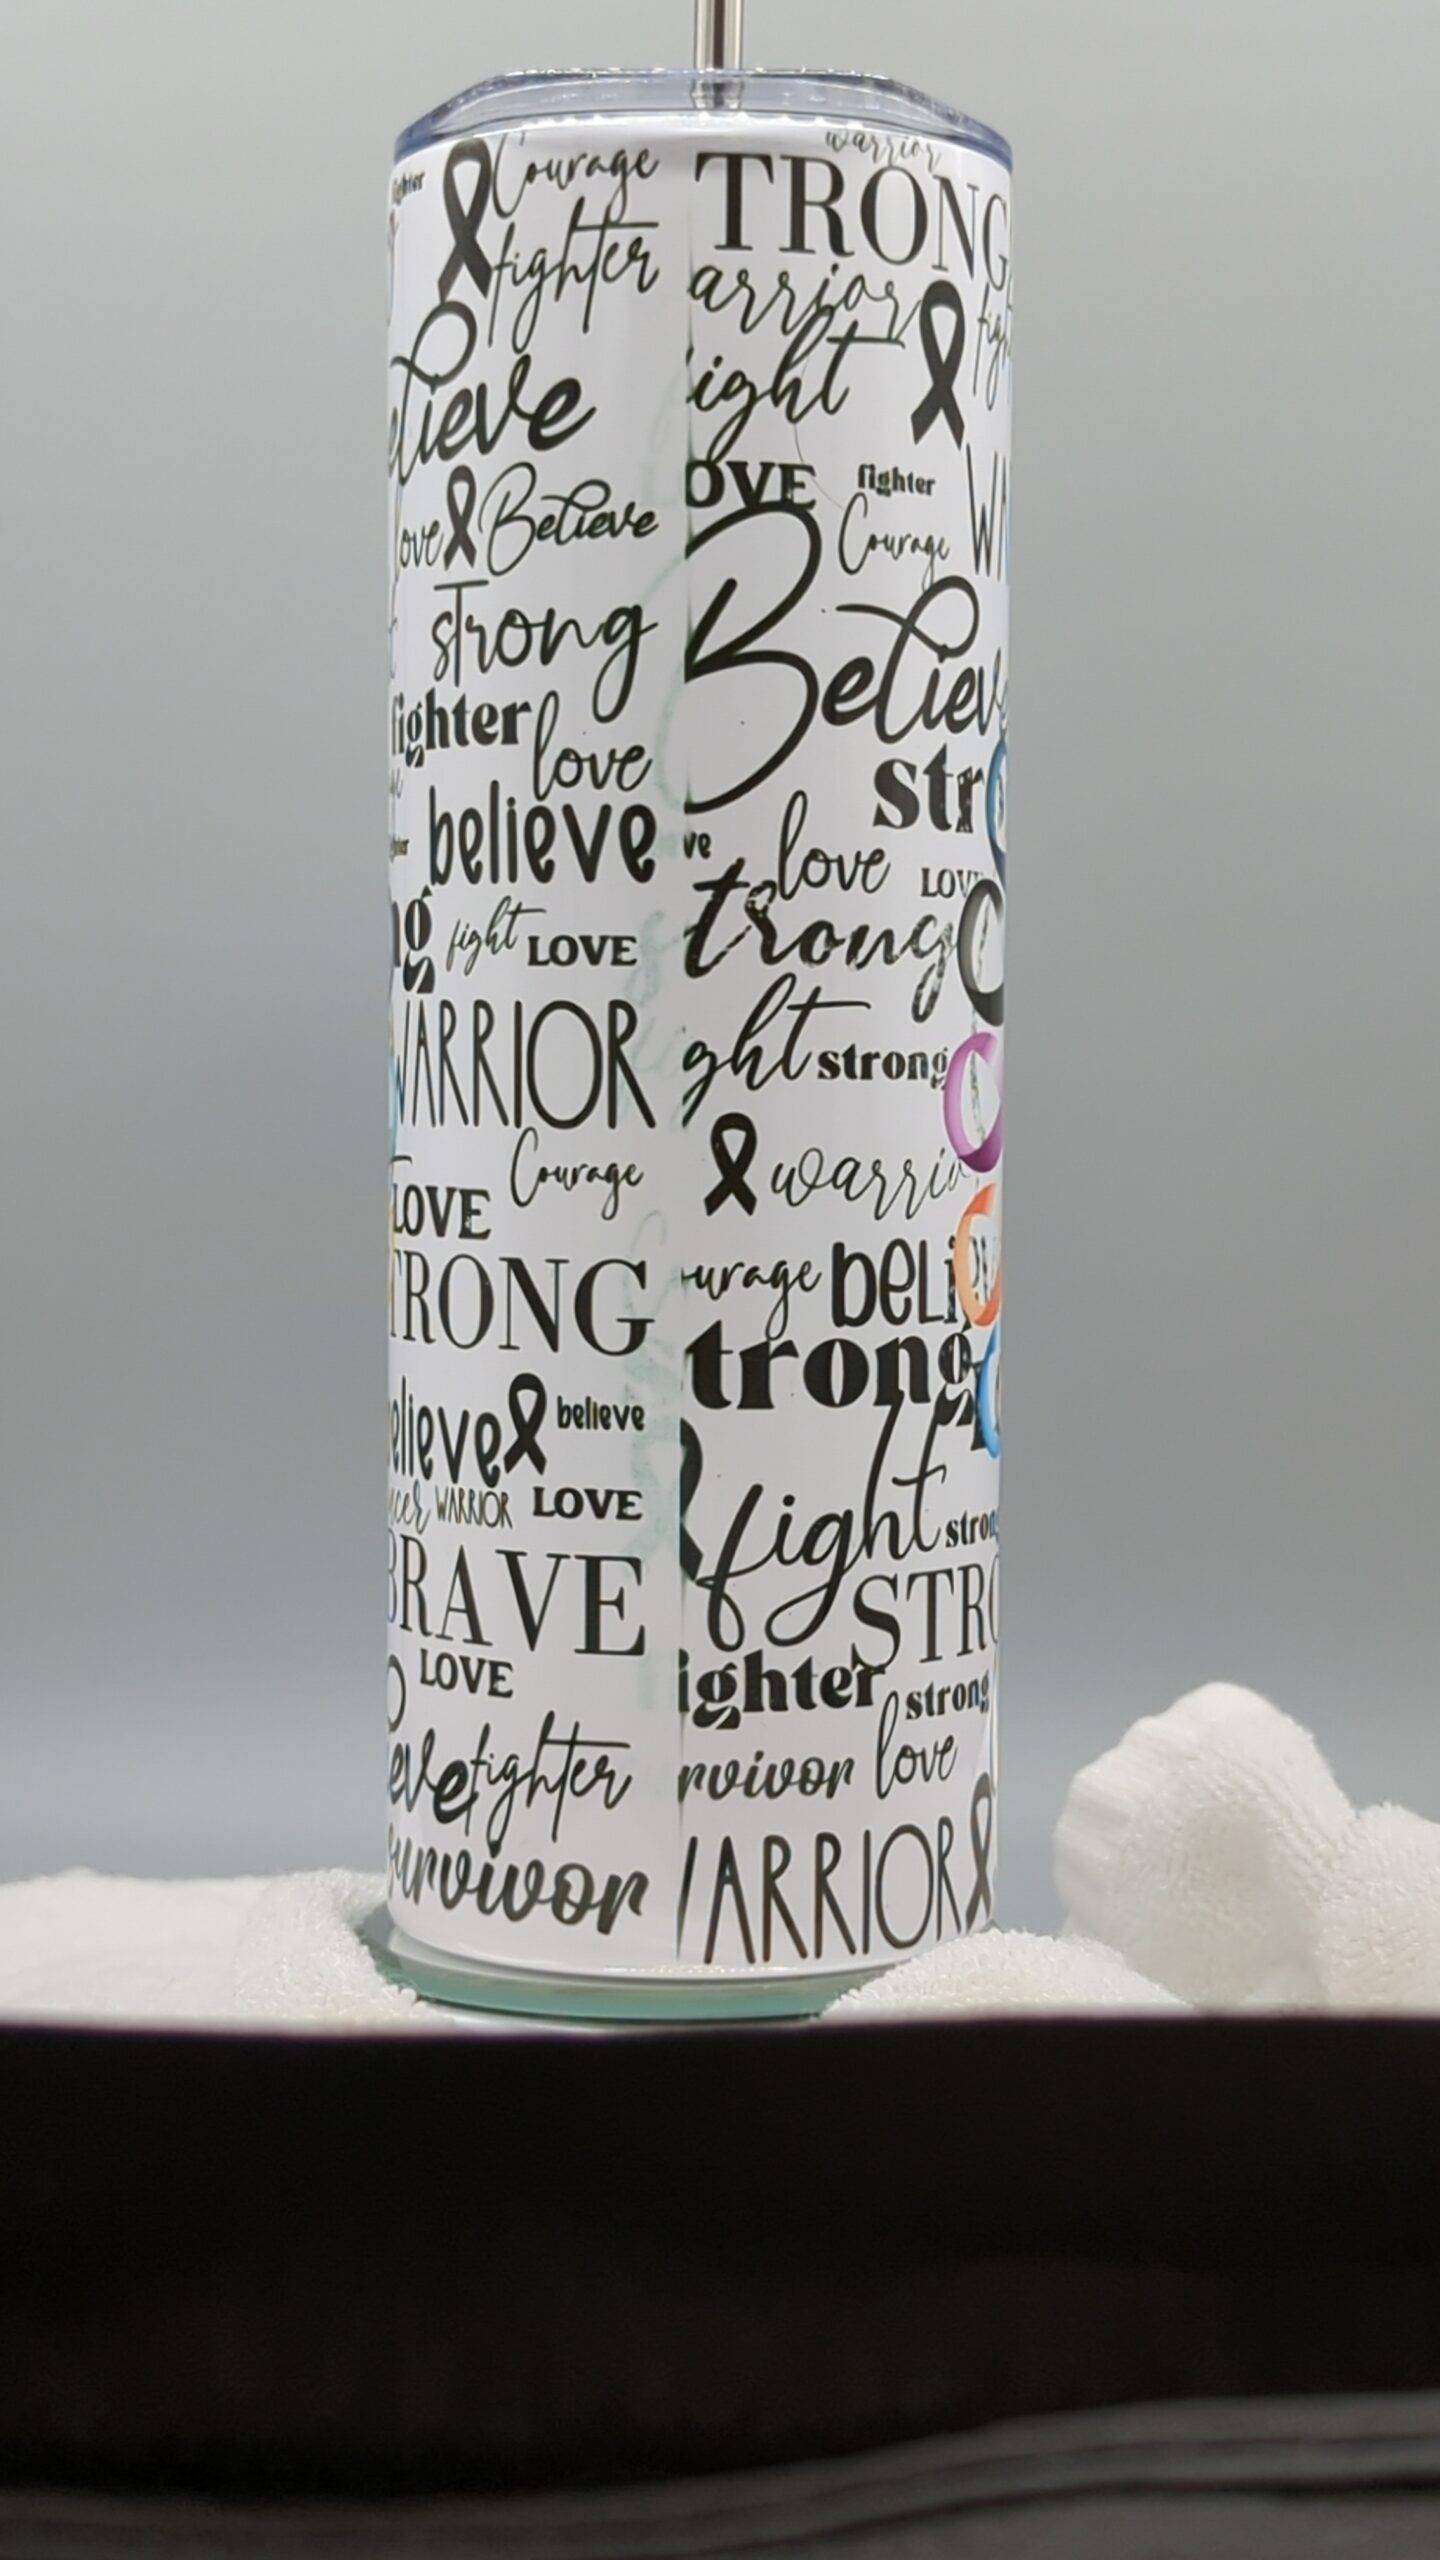 fighter Courage
fighter
elieve
love Believe
strong
fighter love
believe
ng fight LOVE
WARRIOR
Courage
LOVE
TRONG
elieve believe
ncer WARRIOR LOVE
BRAVE
LOVE
eve fighter
survivor
warrior
TRONG
arrior
ight
OVE fighter
Courage WA
Believe
str
ve love LOV
trong
ght strong
warrio
urage beli
trong
fight strong
STRO
ighter strong
rvivor love
WARRIOR